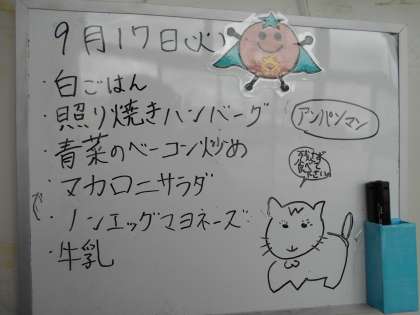 9月17日(火)
・白ごはん
・照り焼きハンバーグ
・青菜のベーコン炒め
・マカロニサラダ
・ノンエッグマヨネーズ
・牛乳
アンパンマン
残さず
食べて
ださい